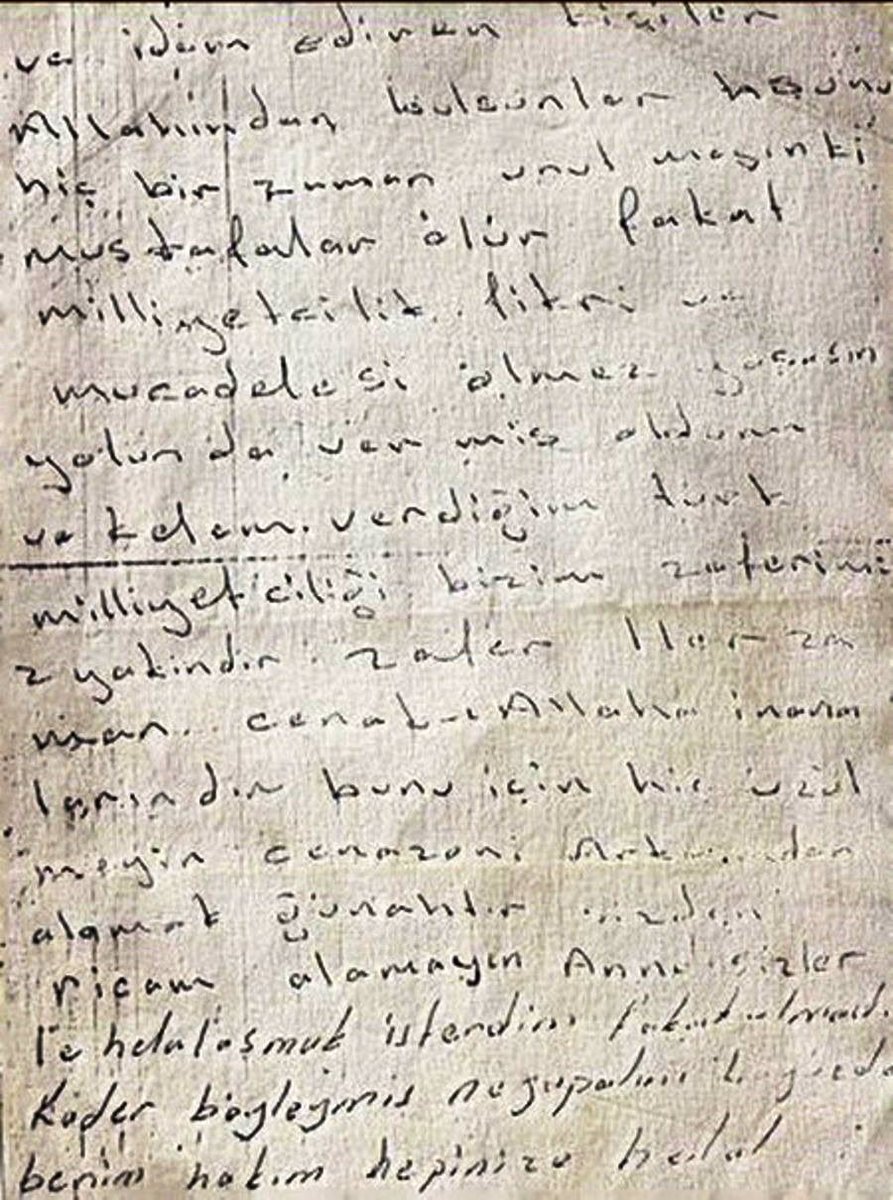 ve idam ediren kişiler
Allahından bulsunlar
hiç bir zaman unul mayınki
Mustafalar ölür fakat
milliyetcilik fikri ve
mucadelesi ölmez yaşasın
yolun da ver miş
ve kelam verdiğim türk
milliyetciliği bizim zaferimi
z yakındır zafer Her za
man cenab-ı Allaha inanan
larındır bunu için hiç üzül
meyin
alamak günahtır sizden
ricam alamayın Anne sizler
le helalaşmak isterdim fakat olmadı
Kader böyleymiş ne yapalım
benim hakım hepinize helal